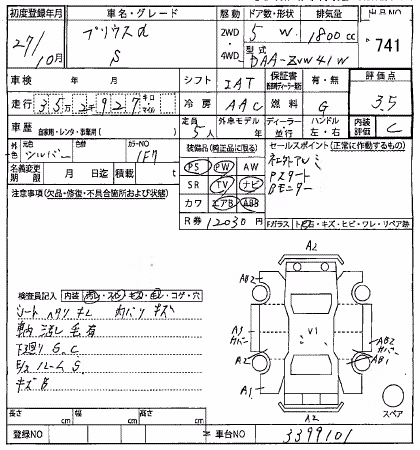 初度登録年月 車名・グレード 駆動 ドア数・形状 排気量 出品NO
27/10月 プリウスα S 2WD 4WD 5 W 1800cc 741
型式 DAA-ZVW41W
車検 年 月 シフト IAT 保証書 有・無 評価点
走行 35万2千927 キロ マイル 冷房 AAC 燃料 G 3.5
車歴 自家用・レンタ・事業用( ) 定員 5人 外車モデル 年 ディーラー 並行 ハンドル 左・右 内装評価 C
外色 元色 シルバー 色替 カラーNO 1F7 装備品(純正品に限る) セールスポイント(正常に作動するもの)
名義変更期限 月 日迄 積載 t PS PW AW
注意事項(欠品・修復・不具合箇所および状態) SR TV ナビ Pスタート
カワ エアB ABS Bモニター
R券 12030円 Fガラス
A2
検査員記入 内装
シート 内ハリ キズ
車内 毛有
下廻り S.C
キズ B
AB2 A2
A1 カバー V1 AB2 カバー
A2 AB1
A1 A2 スペア
長さ cm 幅 cm 高さ cm
登録NO 車台NO 3399101